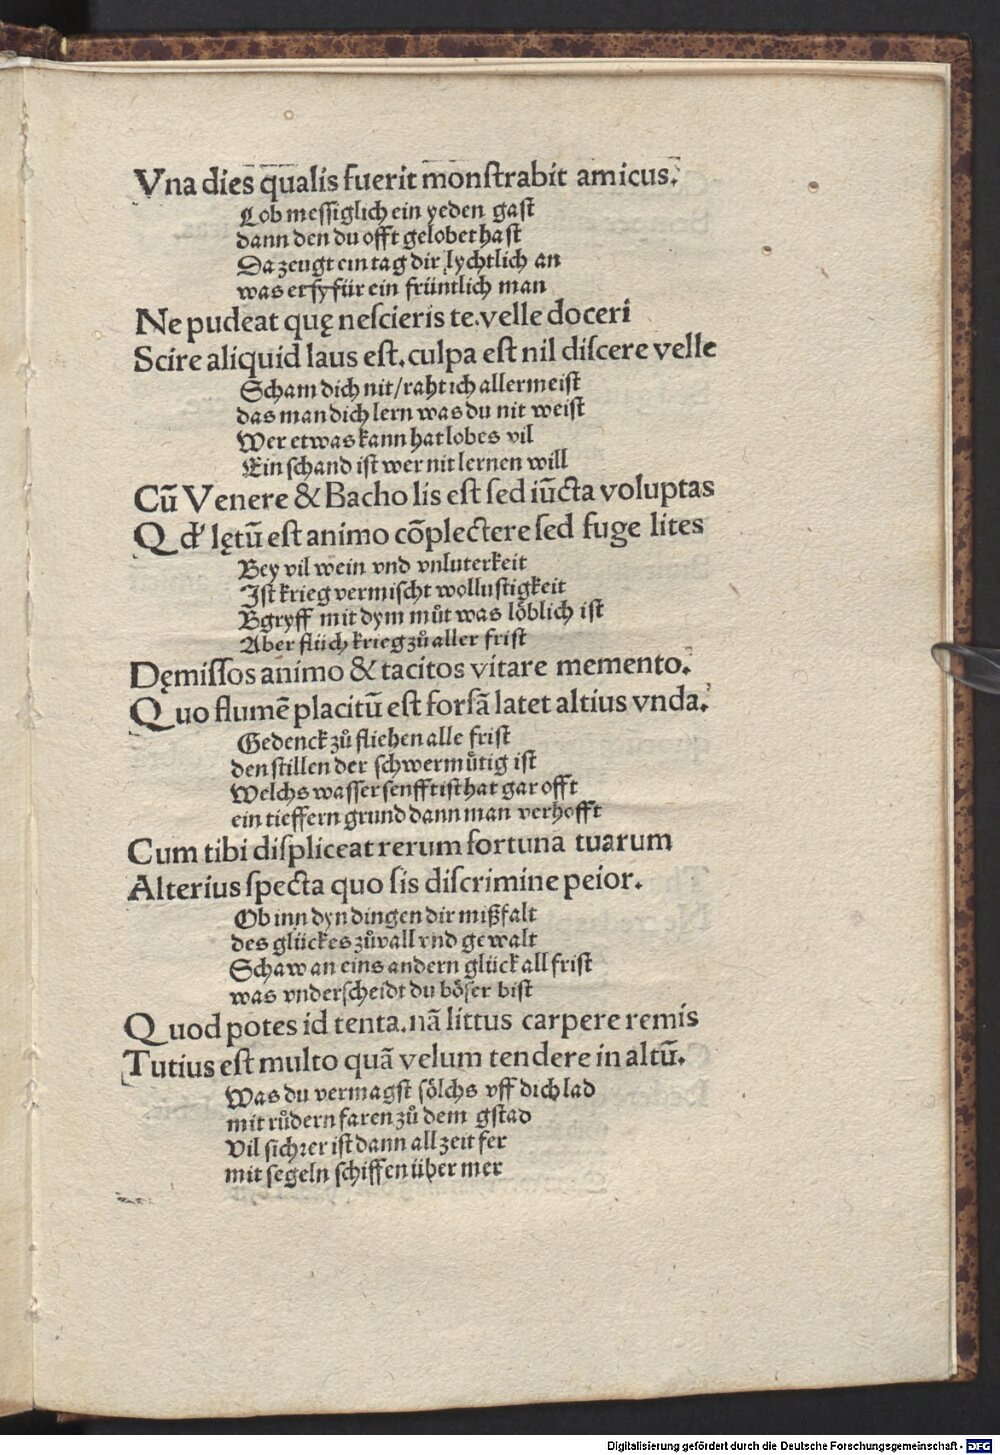 Vna dies qualis fuerit monſtrabit amicus.
Lob meſſiglich ein yeden gaſt
dann den du offt gelobet haſt
Da zeugt ein tag dir lychtlich an
was er ſy für ein früntlich man
Ne pudeat quę neſcieris te.velle doceri
Scire aliquid laus eſt.culpa eſt nil diſcere velle
Scham dich nit/raht ich allermeiſt
das man dich lern was du nit weiſt
Wer etwas kann hat lobes vil
Ein ſchand iſt wer nit lernen will
Cū Venere & Bacho lis eſt ſed iūcta voluptas
Qd' lętū eſt animo cōplectere ſed fuge lites
Bey vil wein vnd vnluterkeit
Iſt krieg vermiſcht wolluſtigkeit
Bgryff mit dym můt was löblich iſt
Aber flüch krieg zů aller friſt
Dęmiſſos animo & tacitos vitare memento.
Quo flumē placitū eſt forſā latet altius vnda.
Gedenck zů fliehen alle friſt
den ſtillen der ſchwermůtig iſt
Welchs waſſer ſenfft iſt hat gar offt
ein tieffern grund dann man verhofft
Cum tibi diſpliceat rerum fortuna tuarum
Alterius ſpecta quo ſis diſcrimine peior.
Ob inn dyn dingen dir mißfalt
des glückes zůvall vnd gewalt
Schaw an eins andern glück all friſt
was vnderſcheidt du böſer biſt
Quod potes id tenta.nā littus carpere remis
Tutius eſt multo quā velum tendere in altū.
Was du vermagſt ſölchs vff dich lad
mit růdern faren zů dem gſtad
Vil ſichꝛer iſt dann all zeit fer
mit ſegeln ſchiffen über mer
Digitalisierung gefördert durch die Deutsche Forschungsgemeinschaft - DFG